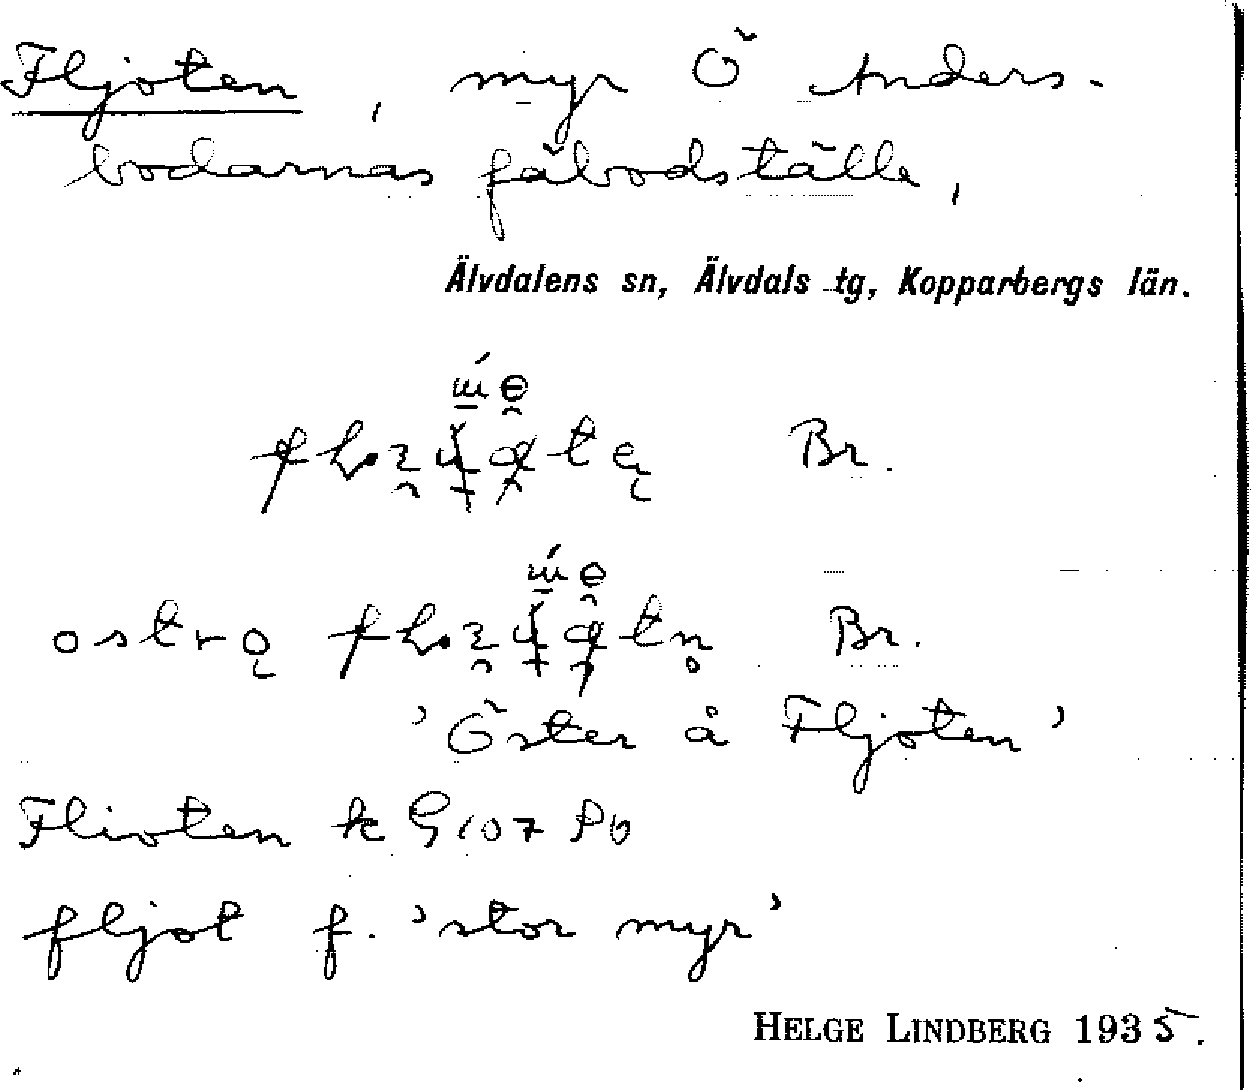 Fljoten, myr Ö Anders-
bodarnas fäbodställe,
Älvdalens sn, Älvdals tg, Kopparbergs län.
Br.
Br.
'Öster å Fljoten'
Flioten k G107
fljot f. 'stor myr'
HELGE LINDBERG 1935.